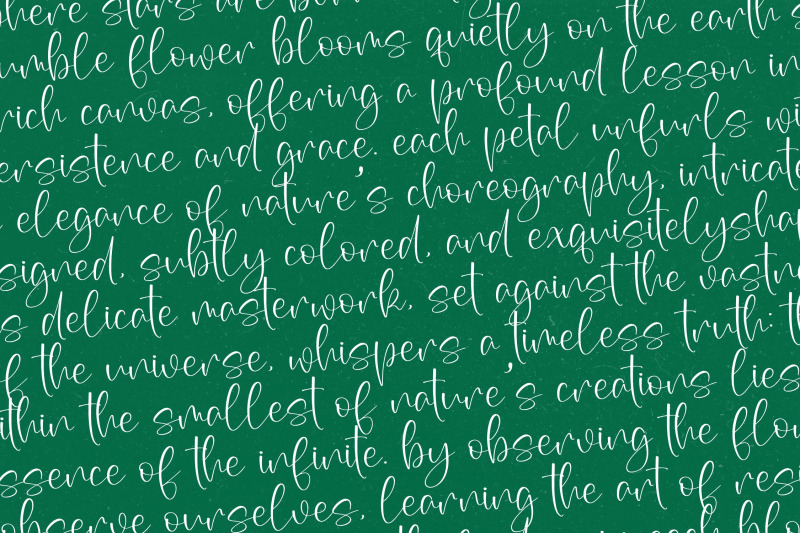 where stars are
umble flower blooms quietly on the earth s
rich canvas, offering a profound lesson in
ersistence and grace. each petal unfurls wi
elegance of nature's choreography, intricate
signed, subtly colored, and exquisitelysha
s delicate masterwork, set against the vastn
f the universe, whispers a timeless truth: t
ithin the smallest of nature's creations lies
ssence of the infinite. by observing the flow
observe ourselves, learning the art of resi
each blo